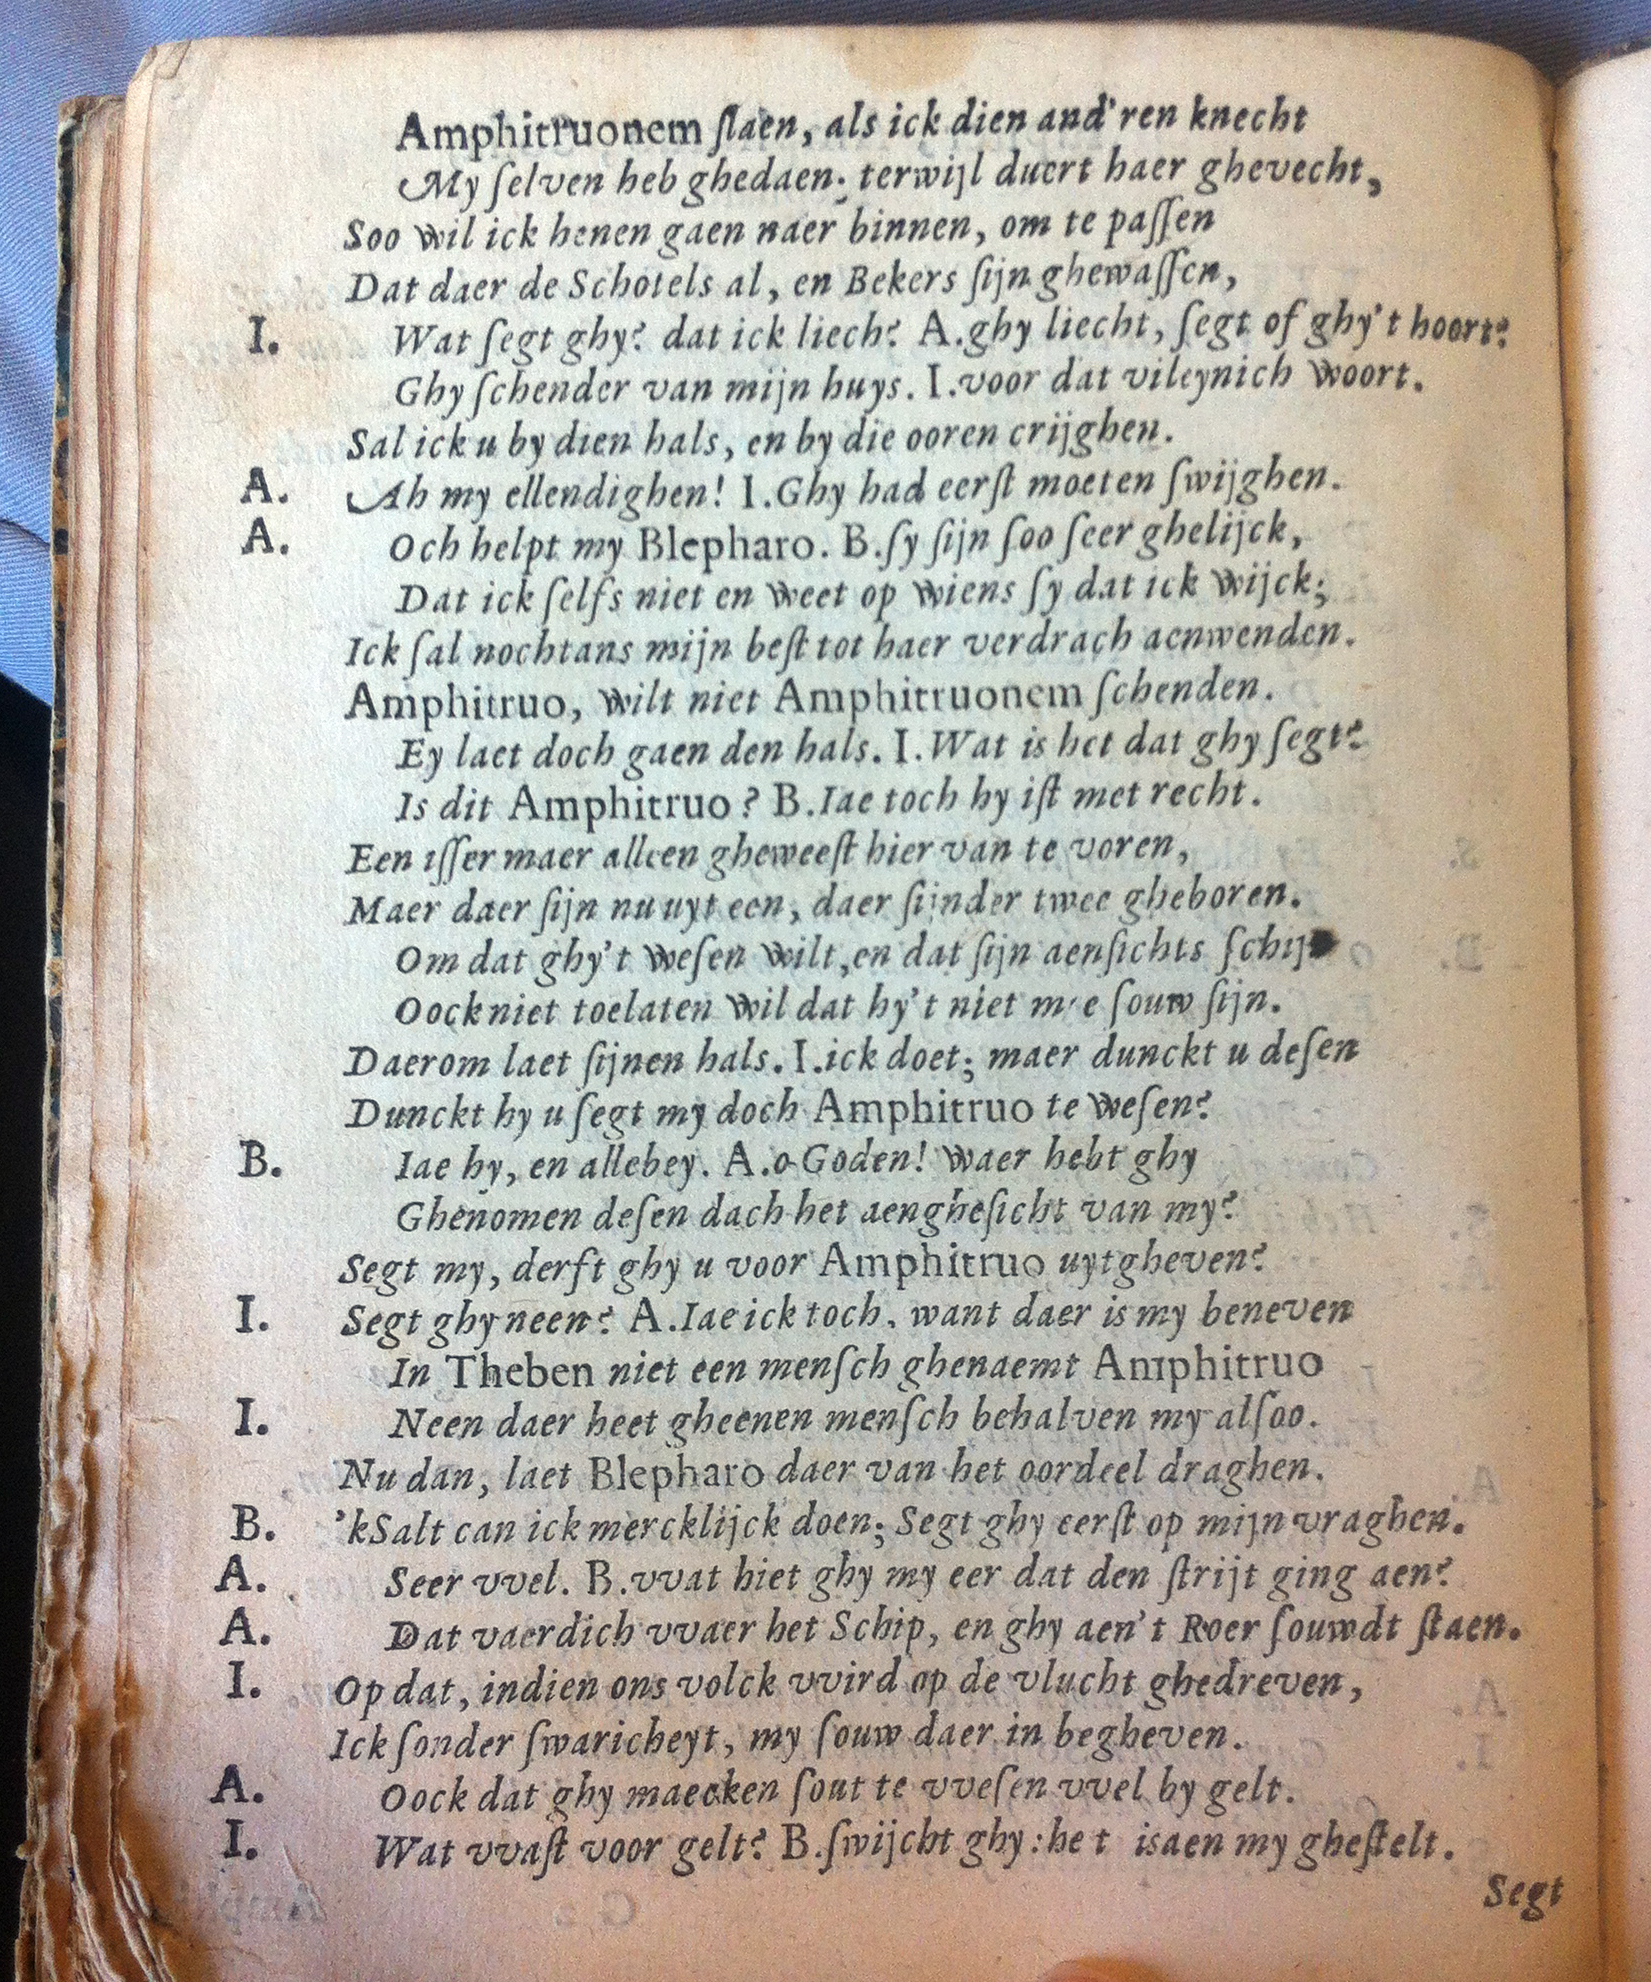 Amphitruonem ſlaen, als ick dien and'ren knecht
My ſelven heb ghedaen; terwijl duert haer ghevecht,
Soo wil ick henen gaen naer binnen, om te paſſen
Dat daer de Schotels al, en Bekers ſijn ghewaſſen,
I. Wat ſegt ghy? dat ick liech? A.ghy liecht, ſegt of ghy't hoort?
Ghy ſchender van mijn huys. I.voor dat vileynich woort.
Sal ick u by dien hals, en by die ooren crijghen.
A. Ah my ellendighen! I.Ghy had eerſt moeten ſwijghen.
A. Och helpt my Blepharo. B.ſy ſijn ſoo ſeer ghelijck,
Dat ick ſelfs niet en weet op wiens ſy dat ick wijck;
Ick ſal nochtans mijn beſt tot haer verdrach aenwenden.
Amphitruo, wilt niet Amphitruonem ſchenden.
Ey laet doch gaen den hals. I.Wat is het dat ghy ſegt?
Is dit Amphitruo? B.Iae toch hy iſt met recht.
Een iſſer maer alleen gheweeſt hier van te voren,
Maer daer ſijn nu uyt een, daer ſijnder twee gheboren.
Om dat ghy't weſen wilt,en dat ſijn aenſichts ſchij
Oock niet toelaten wil dat hy't niet mee ſouw ſijn.
Daerom laet ſijnen hals. I.ick doet; maer dunckt u deſen
Dunckt hy u ſegt my doch Amphitruo te weſen?
B. Iae hy, en allebey. A.o Goden! waer hebt ghy
Ghenomen deſen dach het aengheſicht van my?
Segt my, derft ghy u voor Amphitruo uytgheven?
I. Segt ghy neen? A.Iae ick toch, want daer is my beneven
In Theben niet een menſch ghenaemt Amphitruo
I. Neen daer heet gheenen menſch behalven my alſoo.
Nu dan, laet Blepharo daer van het oordeel draghen.
B. 'kSalt can ick mercklijck doen; Segt ghy eerſt op mijn vraghen.
A. Seer vvel. B.vvat hiet ghy my eer dat den ſtrijt ging aen?
A. Dat vaerdich vvaer het Schip, en ghy aen't Roer ſouwdt ſtaen.
I. Op dat, indien ons volck vvird op de vlucht ghedreven,
Ick ſonder ſwaricheyt, my ſouw daer in begheven.
A. Oock dat ghy maecken ſout te vveſen vvel by gelt.
I. Wat vvaſt voor gelt? B.ſwijcht ghy:het isaen my gheſtelt.
Segt